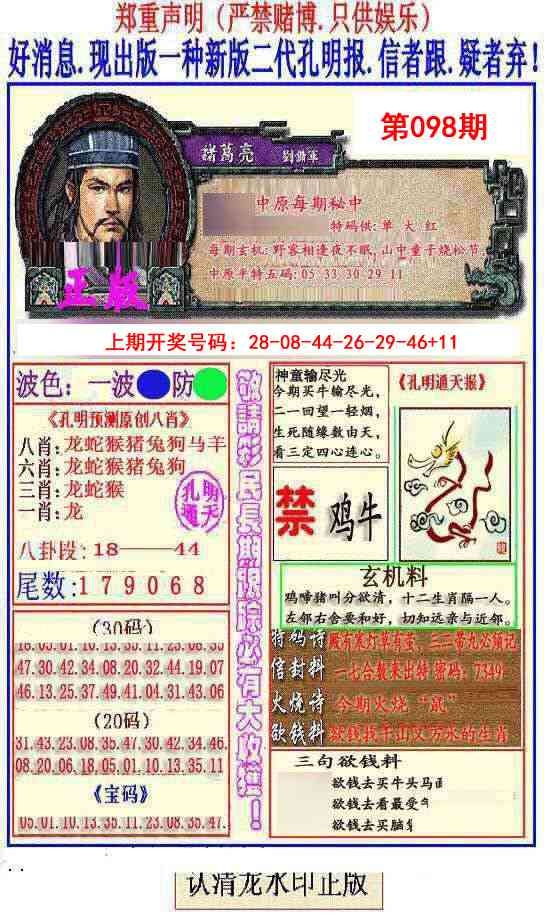 郑重声明（严禁赌博.只供娱乐）
好消息.现出版一种新版二代孔明报.信者跟.疑者弃！
第098期
諸葛亮 劉備軍
中原每期秘中
特码供：单 大 红
每期玄机：野客相逢夜不眠,山中童子烧松节
中原平特五码：05 33 30 29 11
正版
上期开奖号码：28-08-44-26-29-46+11
波色：一波 防
《孔明预测原创八肖》
八肖：龙蛇猴猪兔狗马羊
六肖：龙蛇猴猪兔狗
三肖：龙蛇猴
一肖：龙
孔明通天
八卦段：18——44
尾数：179068
(30码)
47.30.42.34.08.20.32.44.19.07
46.13.25.37.49.41.04.31.43.06
(20码)
31.43.23.08.35.47.30.42.34.46.
08.20.06.18.05.01.10.13.35.11
《宝码》
05.01.10.13.35.11.23.08.35.47.
敬請彩民長期跟踪必有大收獲！
神童输尽光
今期买牛输尽光，
二一回望一轻烟，
生死随缘数由天，
看三定四心连心。
《孔明通天报》
禁 鸡牛
玄机料
鸡啼猪叫分欲清，十二生肖隔一人。
左邻右舍要和好，切知远亲与近邻。
特码诗
信封料 一七合数来出特 密码：7349
火烧诗 今期火烧“鼠”
欲钱料 欲钱找千山又万水的生肖
三句欲钱料
欲钱去买牛头马面
欲钱去看最受
欲钱去买脑
认清龙水印正版